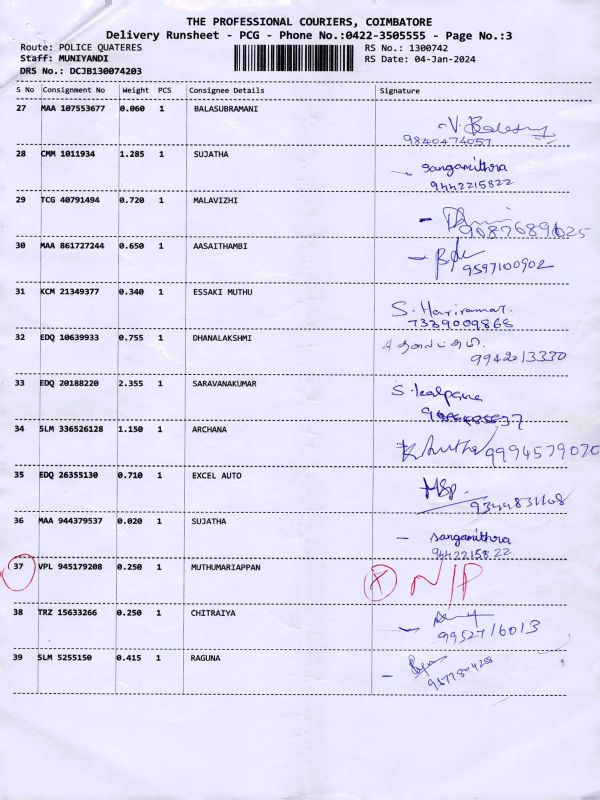 THE PROFESSIONAL COURIERS, COIMBATORE
Delivery Runsheet - PCG - Phone No.:0422-3505555 - Page No.:3
Route: POLICE QUATERES RS No.: 1300742
Staff: MUNIYANDI RS Date: 04-Jan-2024
DRS No.: DCJB130074203
S No Consignment No Weight PCS Consignee Details Signature
27 MAA 107553677 0.060 1 BALASUBRAMANI
9840474057
28 CMM 1011934 1.285 1 SUJATHA sangamithra
9442215822
29 TCG 40791494 0.720 1 MALAVIZHI
9087689025
30 MAA 861727244 0.650 1 AASAITHAMBI
9597100902
31 KCM 21349377 0.340 1 ESSAKI MUTHU S. Hariramar.
7339009868
32 EDQ 10639933 0.755 1 DHANALAKSHMI
9942013330
33 EDQ 20188220 2.355 1 SARAVANAKUMAR S. kalpana
34 SLM 336526128 1.150 1 ARCHANA 9994579070
35 EDQ 26355130 0.710 1 EXCEL AUTO MSP.
9344831108
36 MAA 944379537 0.020 1 SUJATHA - sangamithra
9442215822
37 VPL 945179208 0.250 1 MUTHUMARIAPPAN X N/P
38 TRZ 15633266 0.250 1 CHITRAIYA
9952716013
39 SLM 5255150 0.415 1 RAGUNA